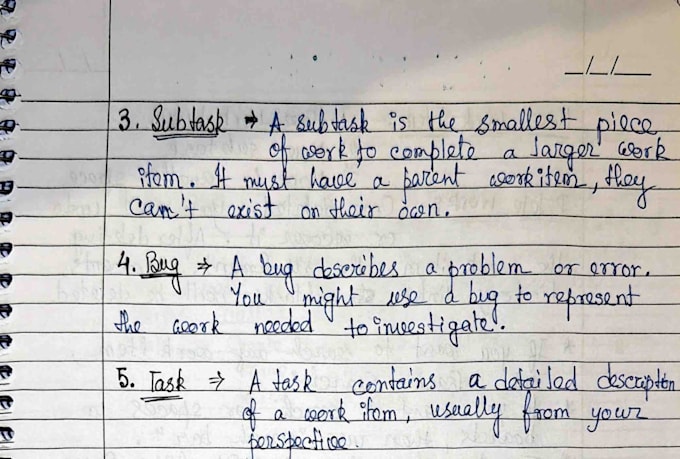 _/_/_
3. Subtask → A subtask is the smallest piece
of work to complete a larger work
item. It must have a parent workitem, they
can't exist on their own.
4. Bug ⇒ A bug describes a problem or error.
You might use a bug to represent
the work needed to investigate.
5. Task ⇒ A task contains a detailed description
of a work item, usually from your
perspective